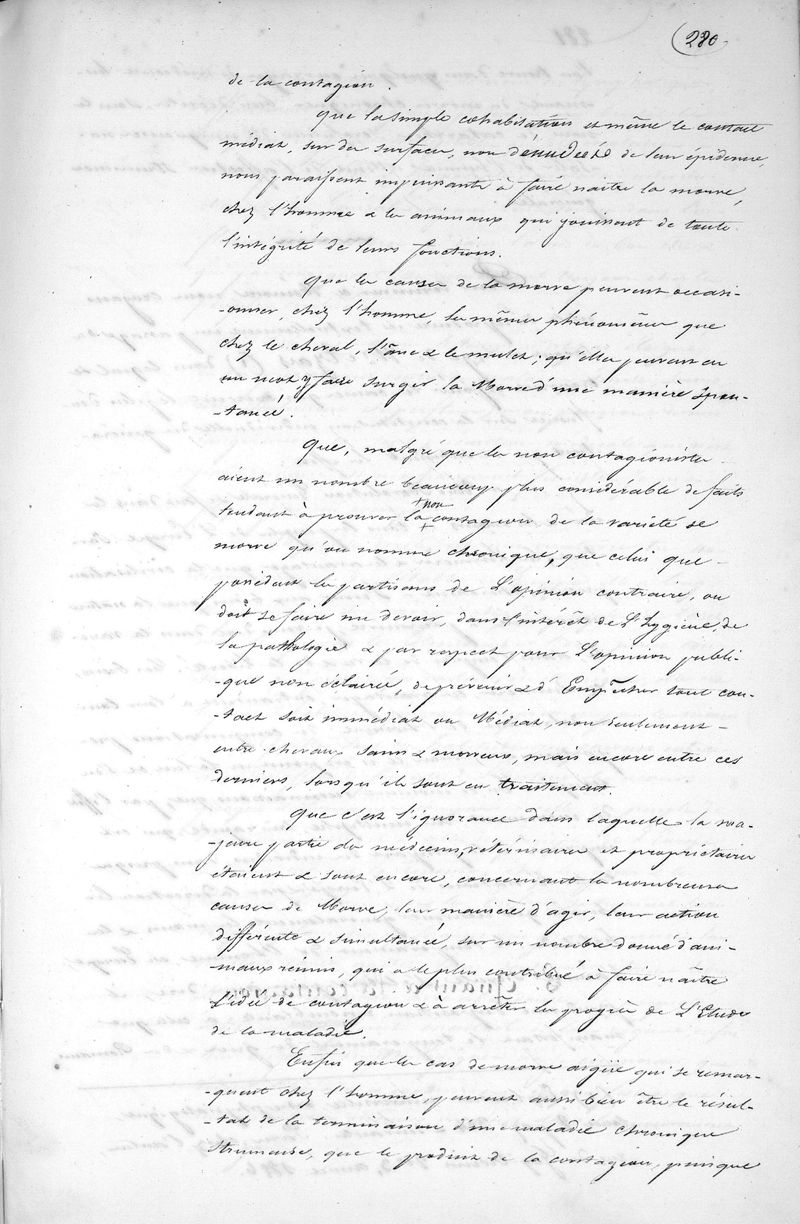 280
de la contagion.
Que la simple cohabitation et même le contact
médiat, sur des surfaces, non dénudées de leur épiderme,
nous paraissent impuissants à faire naître la morve,
chez l'homme & les animaux qui jouissent de toute
l'intégrité de leurs fonctions.
Que les causes de la morve peuvent occasi-
-onner, chez l'homme, les mêmes phénomènes que
chez le cheval, l'âne & le mulet; qu'elles peuvent en
un mot, y faire surgir la Morve d'une manière spon-
-tanée.
Que, malgré que les non contagionistes
aient un nombre beaucoup plus considérable de faits
tendant à prouver la non contagion de la variété de
morve qu'on nomme chronique, que celui que
possèdent les partisans de L'opinion contraire, on
doit se faire un devoir, dans l'intérêt de L'hygiène, de
la pathologie & par respect pour L'opinion publi-
-que non éclairée, de prévenir & d'Empêcher tout con-
-tact soit immédiat ou Médiat, non seulement
entre chevaux sains & morveux, mais encore entre ces
derniers, lorsqu'ils sont en traitement.
Que c'est l'ignorance dans laquelle la ma-
-jeure partie des médecins, vétérinaires et propriétaires
étaient & sont encore, concernant les nombreuses
causes de Morve, leur manière d'agir, leur action
différente & simultanée, sur un nombre donné d'ani-
-maux réunis, qui a le plus contribué à faire naître
L'idée de contagion & à arrêter les progrès de L'Etude
de la maladie.
Enfin que les cas de morve aigüe qui se remar-
-quent chez l'homme, peuvent aussi bien être le résul-
-tat de la terminaison d'une maladie chronique
strumeuse, que le produit de la contagion, puisque